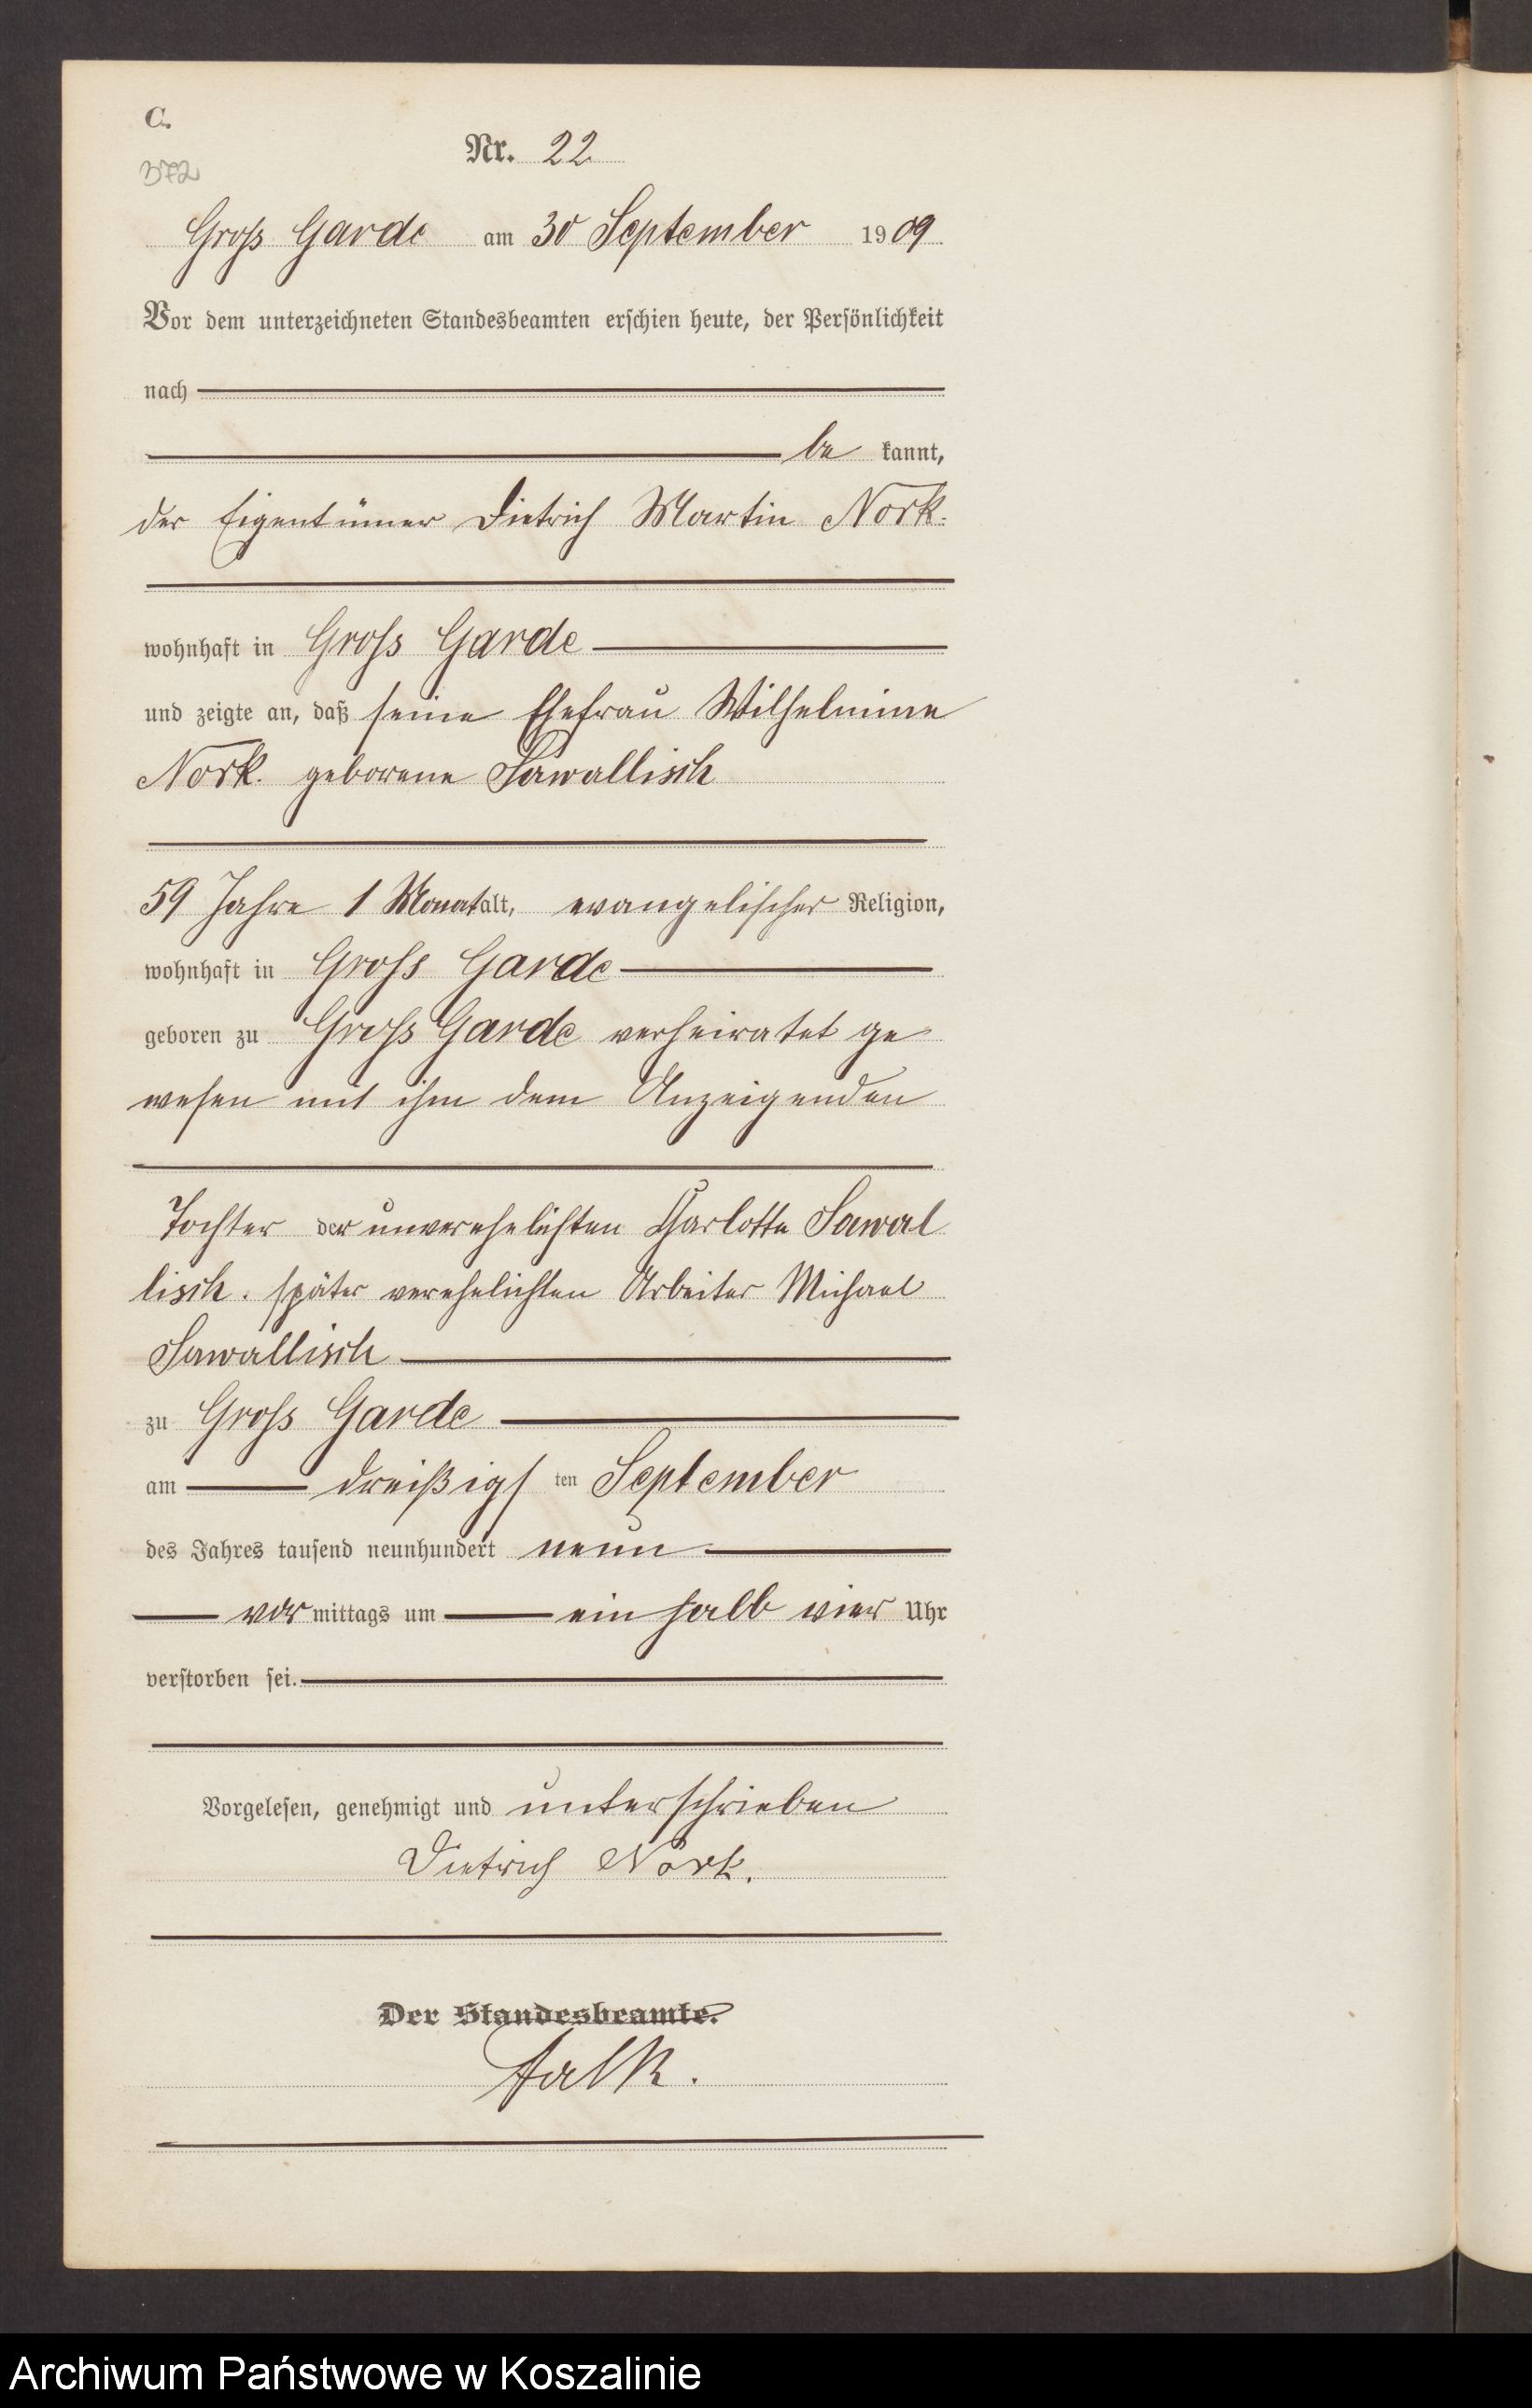 C.
Nr. 22
372
Gross Garde am 30 September 1909
Vor dem unterzeichneten Standesbeamten erschien heute, der Persönlichkeit
nach
be kannt,
der Eigentümer Dietrich Martin Nork.
wohnhaft in Gross Garde
und zeigte an, daß seine Ehefrau Wilhelmine
Nork. geborene Sawallisch
59 Jahre 1 Monat alt, evangelischer Religion,
wohnhaft in Gross Garde
geboren zu Gross Garde verheiratet ge
wesen mit ihm dem Anzeigenden
Tochter der unverehelichten Charlotte Sawal
lisch. später verehelichten Arbeiter Michael
Sawallisch
zu Gross Garde
am dreißigs ten September
des Jahres tausend neunhundert neun
vor mittags um ein halb vier Uhr
verstorben sei.
Vorgelesen, genehmigt und unterschrieben
Dietrich Nork.
Der Standesbeamte.
Falk.
Archiwum Państwowe w Koszalinie